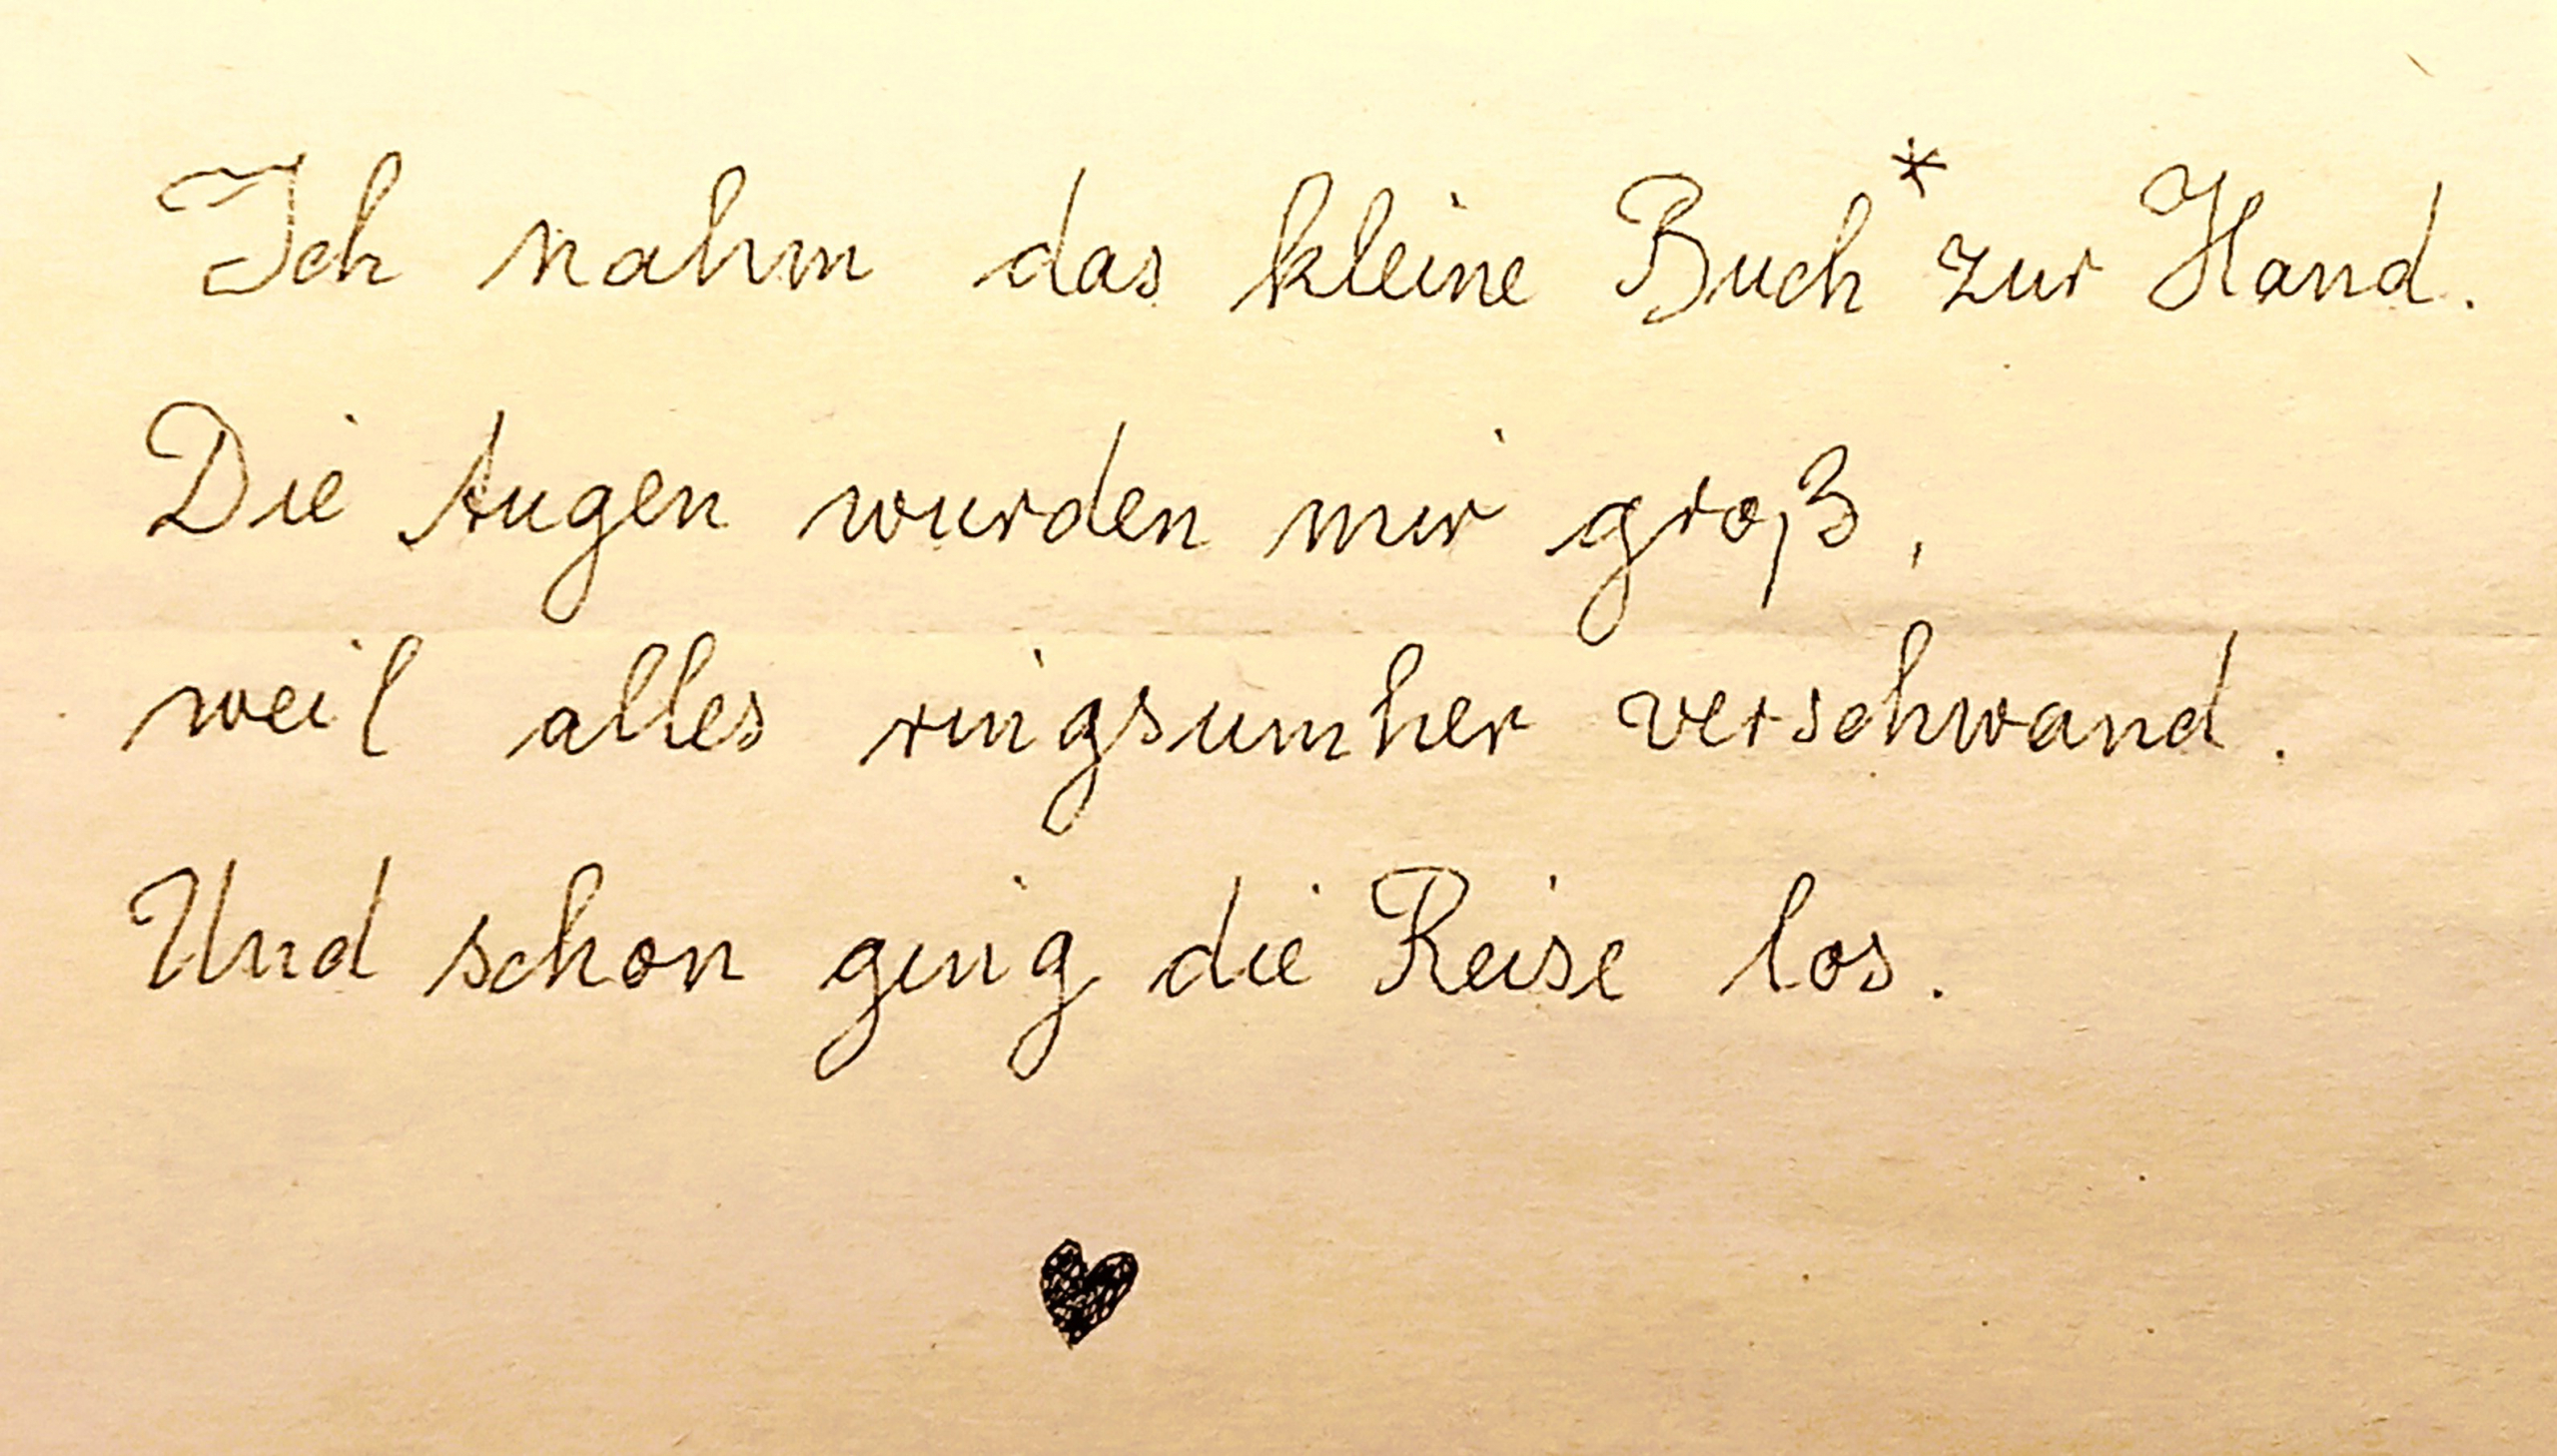 Ich nahm das kleine Buch* zur Hand.
Die Augen wurden mir groß,
weil alles ringsumher verschwand.
Und schon ging die Reise los.